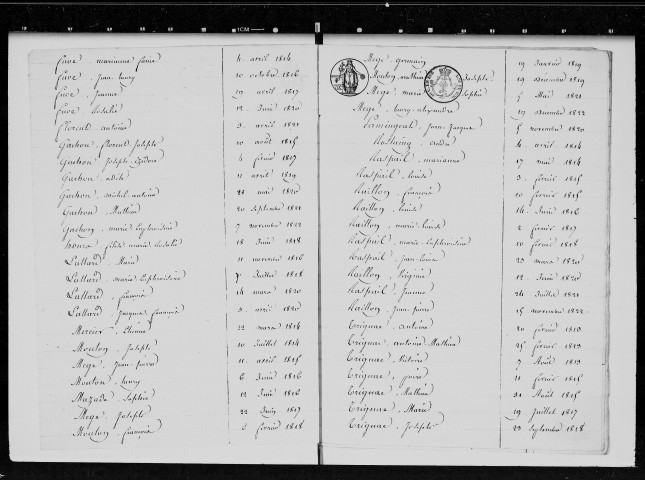 Fuve . marianne 4 avril 1814
Fuve . jean henry 10 octobre 1816
Fuve . jeanne 19 avril 1817
Fuve . rosalie 12 Juin 1820
Florent . antoine 3 avril 1821
Gachon . florent Joseph 10 août 1815
Gachon . Joseph 6 février 1817
Gachon . adèle 11 avril 1819
Gachon . michel antoine 22 mai 1820
Gachon . Mathieu 20 Septembre 1821
Gachon . marie Euphrosine 7 novembre 1822
marie Rosalie 18 Juin 1818
Lattard . Marie 11 novembre 1816
Lattard . marie Euphrosine 7 Juillet 1818
Lattard . françois 14 mars 1820
Lattard . Jacques françois 3 avril 1820
Mercier . Etienne 12 mars 1814
Mouton . Joseph 10 Juillet 1814
Mege . Jean pierre 11 avril 1815
Mouton . henry 6 Juin 1816
Mazade . Sophie 12 Juin 1816
Mege . Joseph 22 Juin 1817
Mouton . françois 5 février 1818
Mege . germain 19 Janvier 1819
Mouton . mathieu Joseph 19 décembre 1819
Mege . marie Sophie 5 Mai 1821
Mege . henry alexandre 19 novembre 1822
jean Jacques 5 novembre 1820
6 avril 1814
Raspail . marianne 17 mai 1814
Raspail . louise 3 février 1815
Raillon . françois 10 février 1815
Raillon . louise 14 Juin 1816
Raillon . marie louise 2 février 1817
Raspail . marie Euphrosine 10 février 1818
Raspail . jean louis 23 mars 1820
Raillon . Virginie 12 Juin 1820
Raspail . Jeanne 24 Juillet 1821
Raillon . jean pierre 15 novembre 1822
Trignac . Antoine 20 février 1813
Trignac . antoine Mathieu 25 février 1813
Trignac . Victoire 7 Août 1813
Trignac . 11 février 1815
Trignac . Mathieu 31 Août 1815
Trignac . Marie 19 Juillet 1817
Trignac . Joseph 23 Septembre 1818